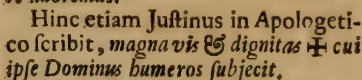 Hinc etiam Juſtinus in Apologeti-
co ſcribit, magna vis & dignitas ✠ cui
ipſe Dominus humeros ſubjecit.